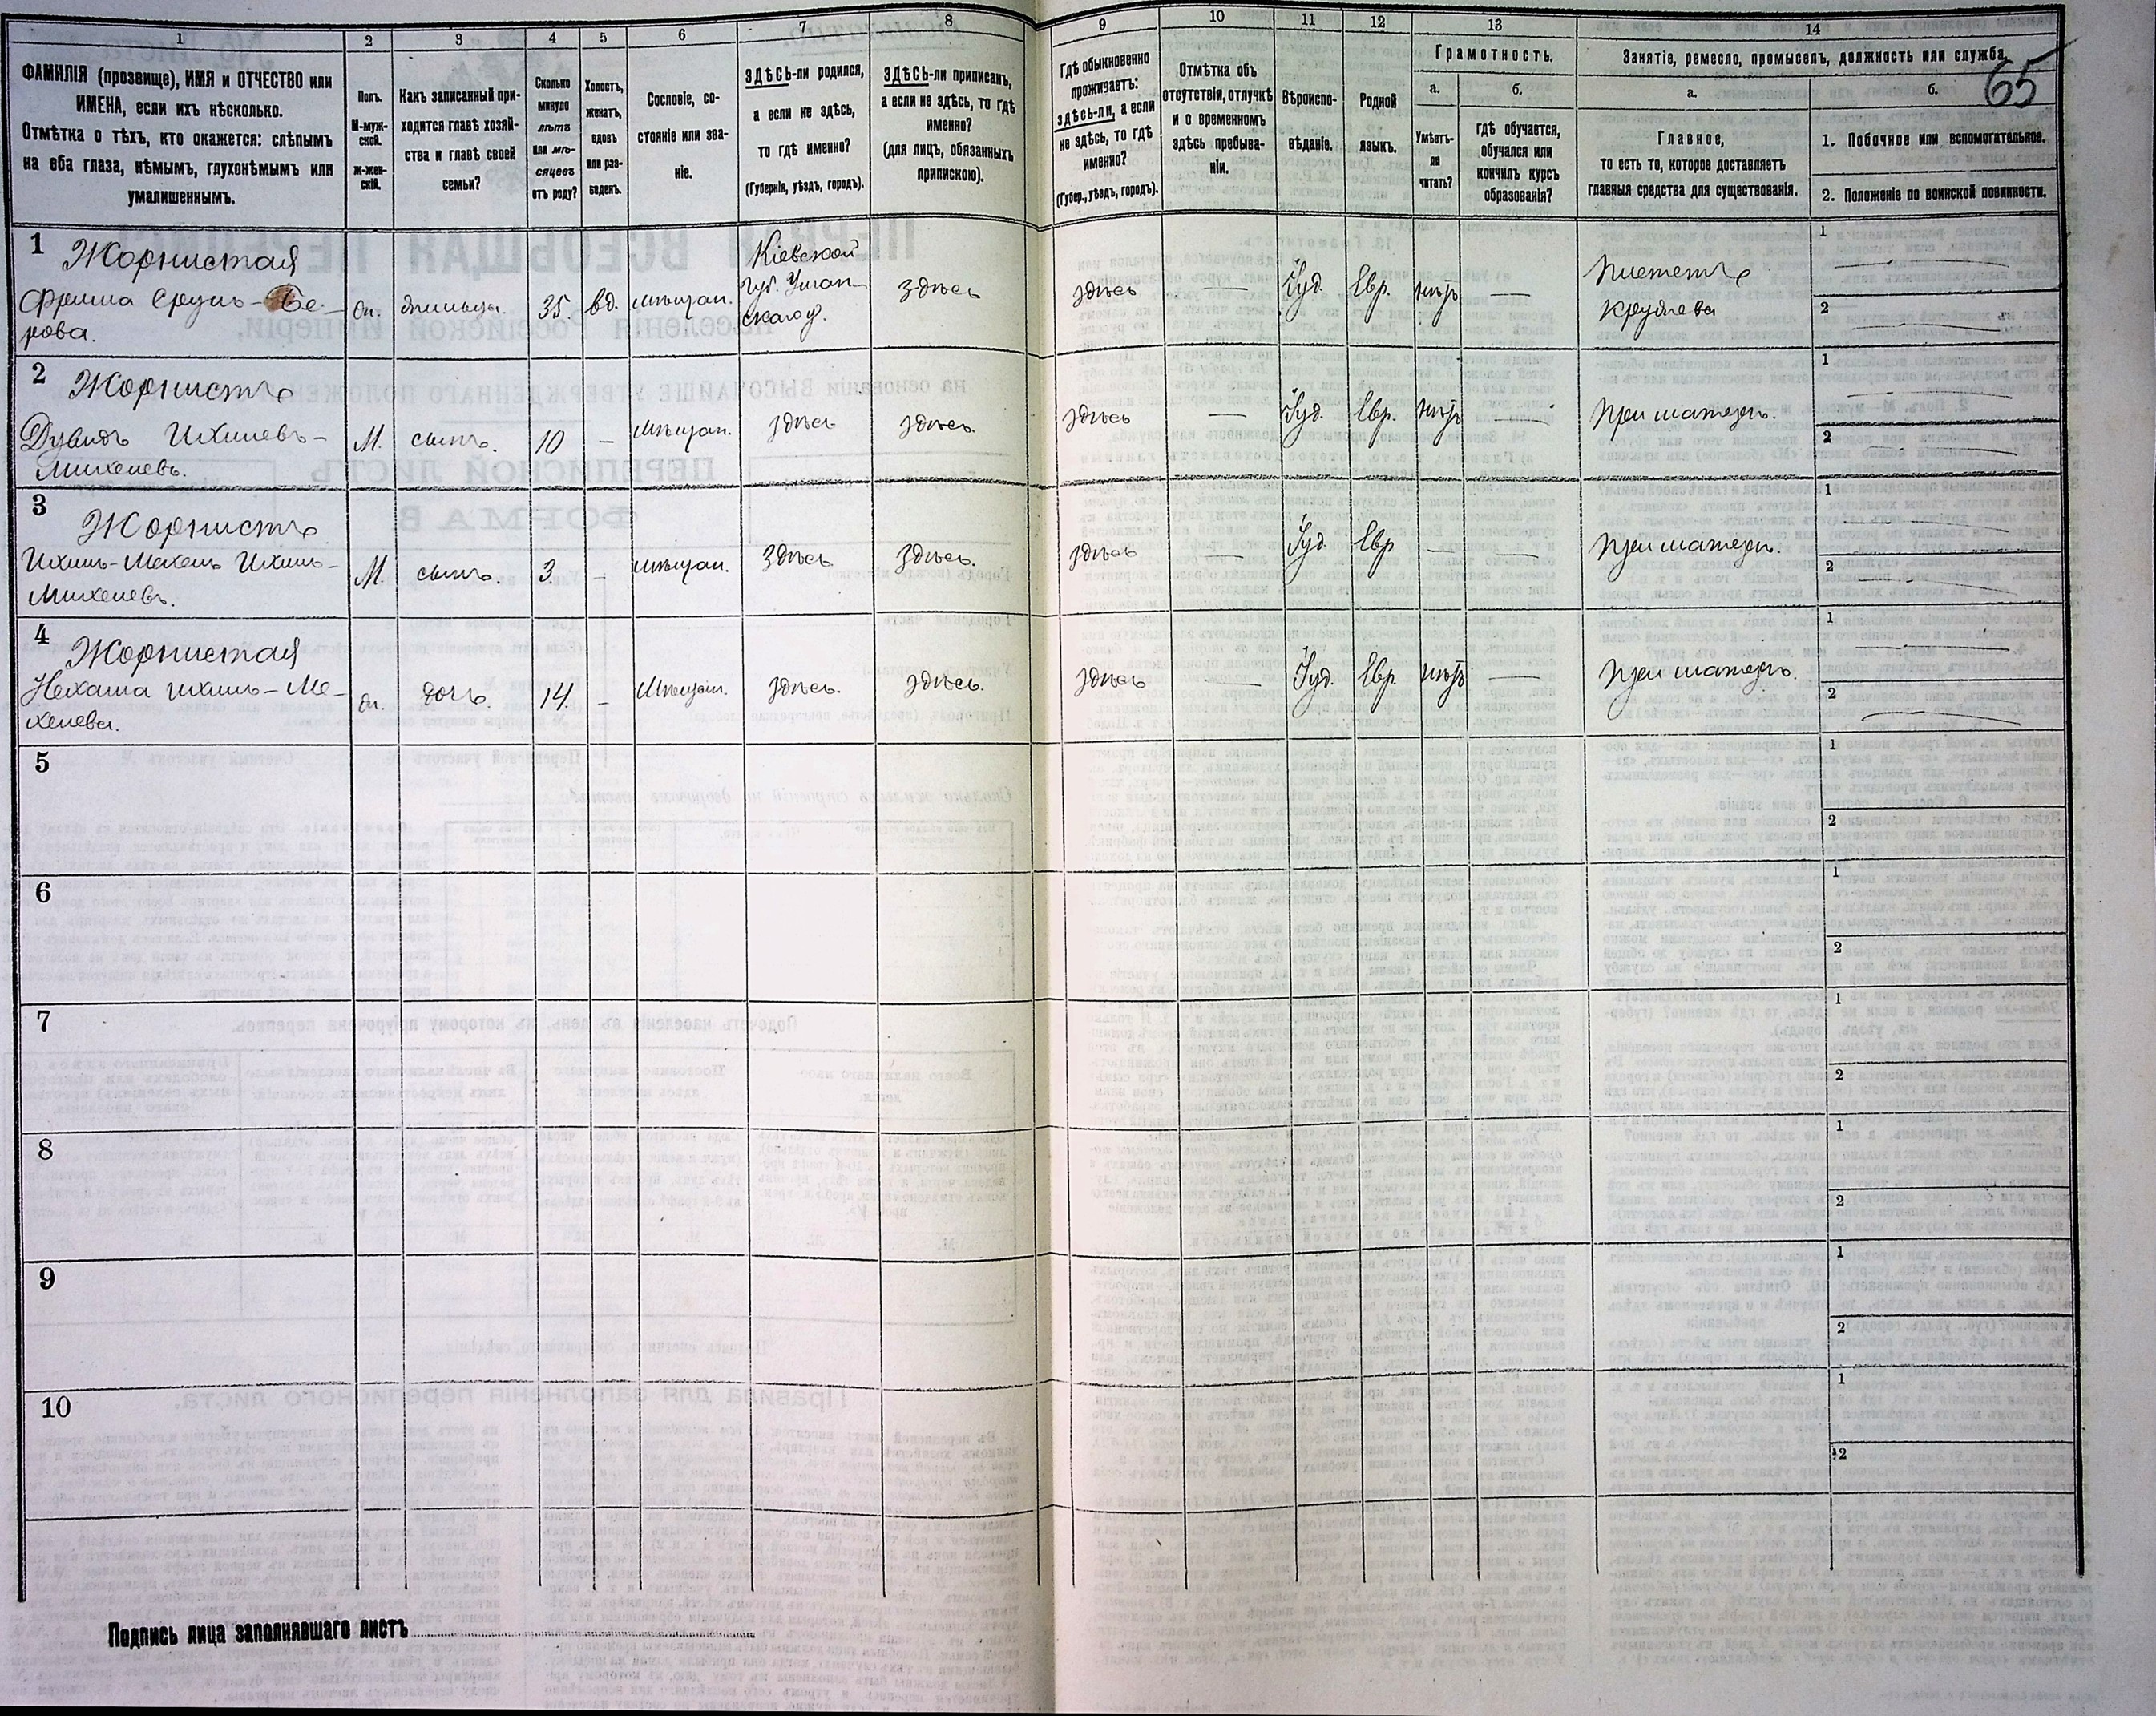 65
1 2 3 4 5 6 7 8 9 10 11 12 13 14
ФАМИЛІЯ (прозвище), ИМЯ и ОТЧЕСТВО или
ИМЕНА, если ихъ нѣсколько.
Отмѣтка о тѣхъ, кто окажется: слѣпымъ
на оба глаза, нѣмымъ, глухонѣмымъ или
умалишеннымъ.
Полъ.
М-муж-
ской.
ж-жен-
скій.
Какъ записанный при-
ходится главѣ хозяй-
ства и главѣ своей
семьи?
Сколько
минуло
лѣтъ
или мѣ-
сяцевъ
отъ роду?
Холостъ,
женатъ,
вдовъ
или раз-
веденъ.
Сословіе, со-
стояніе или зва-
ніе.
ЗДѢСЬ-ли родился,
а если не здѣсь,
то гдѣ именно?
(Губернія, уѣздъ, городъ).
ЗДѢСЬ-ли приписанъ,
а если не здѣсь, то гдѣ
именно?
(для лицъ, обязанныхъ
припискою).
Гдѣ обыкновенно
проживаетъ:
здѣсь-ли, а если
не здѣсь, то гдѣ
именно?
(Губер., уѣздъ, городъ).
Отмѣтка объ
отсутствіи, отлучкѣ
и о временномъ
здѣсь пребыва-
ніи.
Вѣроиспо-
вѣданіе.
Родной
языкъ.
Грамотность.
а.
Умѣетъ-
ли
читать?
б.
гдѣ обучается,
обучался или
кончилъ курсъ
образованія?
Занятіе, ремесло, промыселъ, должность или служба.
а.
Главное,
то есть то, которое доставляетъ
главныя средства для существованія.
б.
1. Побочное или вспомогательное.
2. Положеніе по воинской повинности.
1 Жорнистая
Фрима Сруль-Бе-
рова.
35. вд. мѣщан.
Кіевской
губ. Уман-
скаго у.
здѣсь здѣсь — Іуд. Евр. нѣтъ —
Крупева
1
2
2 Жорнистъ
Дувидъ Ихилевъ-
Михелевъ.
М. сынъ. 10 — мѣщан. здѣсь здѣсь. здѣсь — Іуд. Евр. нѣтъ — при матери.
1
2
3 Жорнистъ
Ихиль-Мехель Ихиль-
Михелевъ.
М. сынъ. 3. — мѣщан. здѣсь здѣсь. здѣсь — Іуд. Евр — — при матери.
1
2
4 Жорнистая
Нехама Ихиль-Ме-
хелева.
ж. дочь. 14. — мѣщан. здѣсь. здѣсь. здѣсь — Іуд. Евр. нѣтъ — при матери.
1
2
5
1
2
6
1
2
7
1
2
8
1
2
9
1
2
10
1
2
Подпись лица заполнявшаго листъ